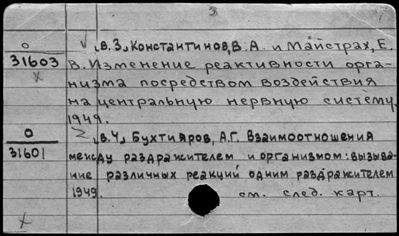 3
О в.3, Константинов, В. А. и Майстрах, Е.
31603 В. Изменение реактивности орга-
х низма посредством воздействия
на центральную нервную систему.
1949.
О в.4, Бухтияров, А.Г. Взаимоотношения
31601 между раздражителем и организмом: вызыва-
ние различных реакций одним раздражителем
1949. см. след. карт.
х